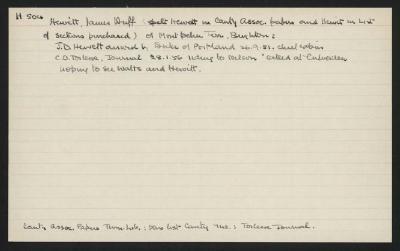 H 506
Hewitt, James Duff (spelt Hewett in Canty Assoc. papers and Hewit in List
of sections purchased) of Montpelier Brighton :
J.D. Hewett arrived by Duke of Portland 26.9.51. chief cabin
C.O. Torlesse, Journal 28.1.56 riding to Nelson "called at Culverden
hoping to see Watts and Hewitt.
Canty Assoc. Papers Turn. Lib. : List Canty Mus. : Torlesse Journal.